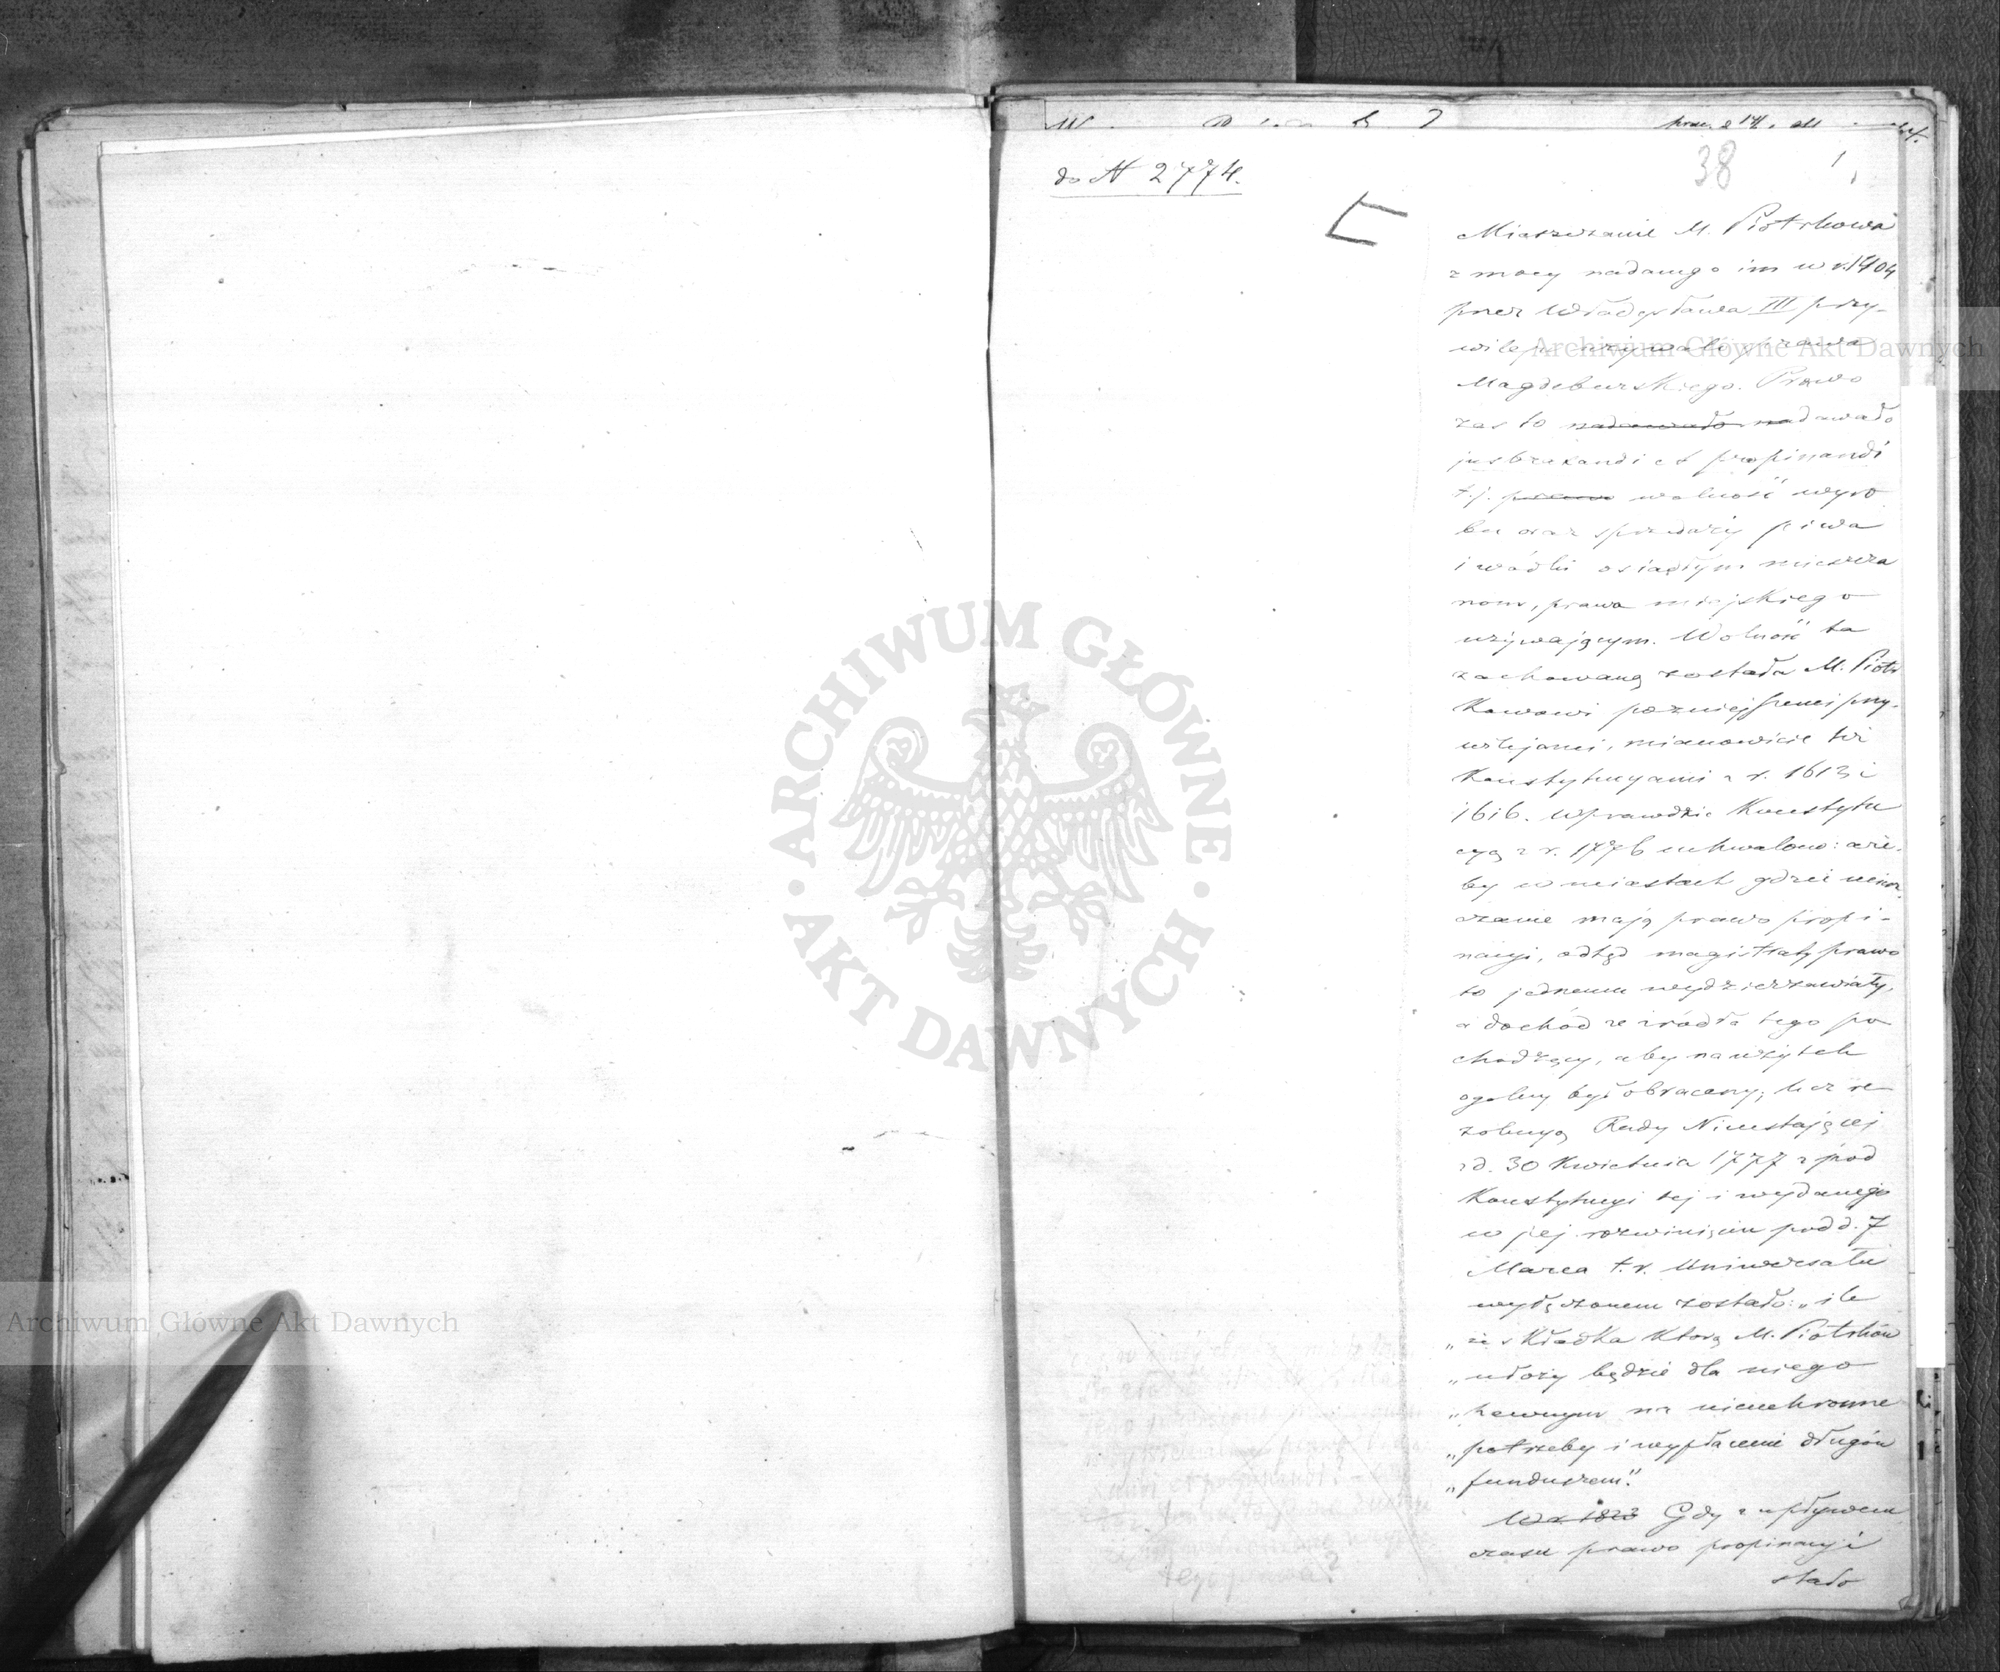 do N 2774.
38
1
Mieszczanie M. Piotrkowa
z mocy nadanego im w r. 1404
przez Władysława III przy-
wileju używali prawa
Magdeburskiego. Prawo
zaś to nadawało nadawało
jus braxandi et propinandi
t.j. prawo wolność wyro
bu oraz sprzedaży piwa
i wódki osiadłym mieszcza
nom, prawa miejskiego
używającym. Wolność ta
zachowaną została M. Piotr
kowowi pozniejszemi przy-
wilejami, mianowicie też
Konstytucyami z r. 1613 i
1616. Wprawdzie Konstytu
cyą z r. 1776 uchwalono: aże-
by w miastach gdzie miesz
czanie mają prawo propi-
nacyi, odtąd magistraty prawo
to jednemu wydzierzawiały,
a dochód ze źródła tego po
chodzący, aby na użytek
ogolny był obracany; lecz re
zolucyą Rady Nieustającej
z d. 30 Kwietnia 1777 z pod
Konstytucyi tej i wydanego
w jej rozwinięciu pod d. 7
Marca t.r. Uniwersału
wyłączonem zostało: „ile
„że składka którą M. Piotrków
„ułoży będzie dla niego
„pewnym na nieuchronne
„potrzeby i wypłacenie długów
„funduszem".
W r. 1823 Gdy z upływem
czasu prawo propinacyi
stało
tego prawa?
Archiwum Główne Akt Dawnych
Archiwum Główne Akt Dawnych
ARCHIWUM GŁÓWNE
AKT DAWNYCH